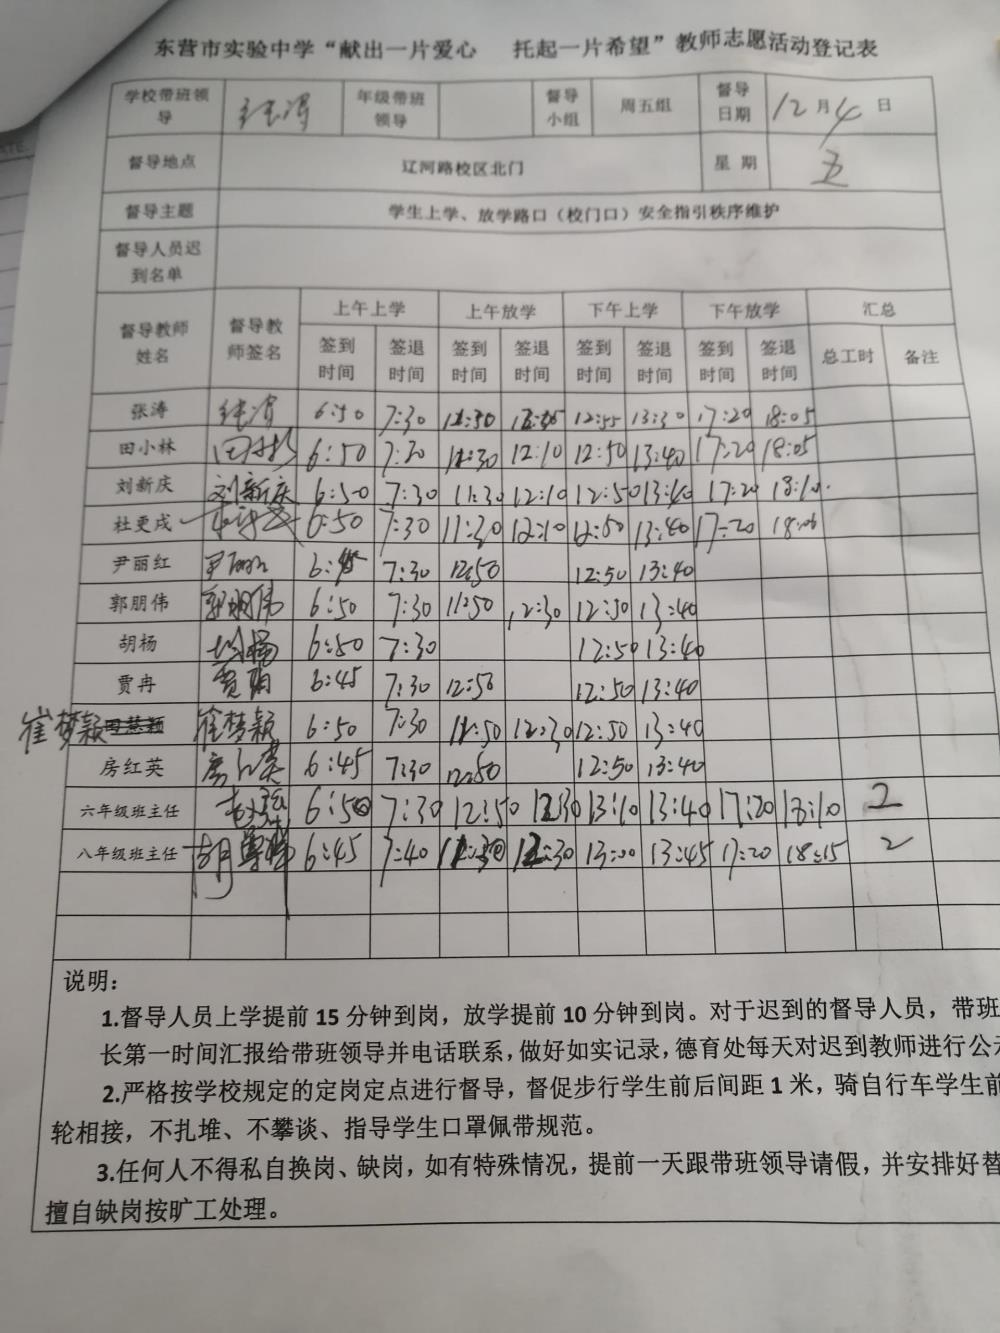 东营市实验中学“献出一片爱心 托起一片希望”教师志愿活动登记表
学校带班领导 张涛 年级带班领导 督导小组 周五组 督导日期 12月4日
督导地点 辽河路校区北门 星期 五
督导主题 学生上学、放学路口（校门口）安全指引秩序维护
督导人员迟到名单
督导教师姓名 督导教师签名 上午上学 上午放学 下午上学 下午放学 汇总
签到时间 签退时间 签到时间 签退时间 签到时间 签退时间 签到时间 签退时间 总工时 备注
张涛 张涛 6:50 7:30 11:30 12:55 13:30 17:20 18:05
田小林 田小林 6:50 7:30 11:30 12:10 12:50 13:40 17:20 18:05
刘新庆 刘新庆 6:50 7:30 11:30 12:10 12:50 13:40 17:20 18:10.
杜更戌 6:50 7:30 11:30 12:10 12:50 13:40 17:20 18:06
尹丽红 尹丽红 6:45 7:30 12:50 12:50 13:40
郭朋伟 郭朋伟 6:50 7:30 11:50 12:30 12:50 13:40
胡杨 胡杨 6:50 7:30 12:50 13:40
贾冉 贾冉 6:45 7:30 12:50 12:50 13:40
崔梦颖 崔梦颖 6:50 7:30 11:50 12:30 12:50 13:40
房红英 房红英 6:45 7:30 12:50 12:50 13:40
六年级班主任 6:50 7:30 12:50 13:10 13:40 17:20 18:10 2
八年级班主任 6:45 7:40 12:30 13:00 13:45 17:20 18:15 2
说明：
1.督导人员上学提前 15 分钟到岗，放学提前 10 分钟到岗。对于迟到的督导人员，带班
长第一时间汇报给带班领导并电话联系，做好如实记录，德育处每天对迟到教师进行公示
2.严格按学校规定的定岗定点进行督导，督促步行学生前后间距 1 米，骑自行车学生前
轮相接，不扎堆、不攀谈、指导学生口罩佩带规范。
3.任何人不得私自换岗、缺岗，如有特殊情况，提前一天跟带班领导请假，并安排好替
擅自缺岗按旷工处理。